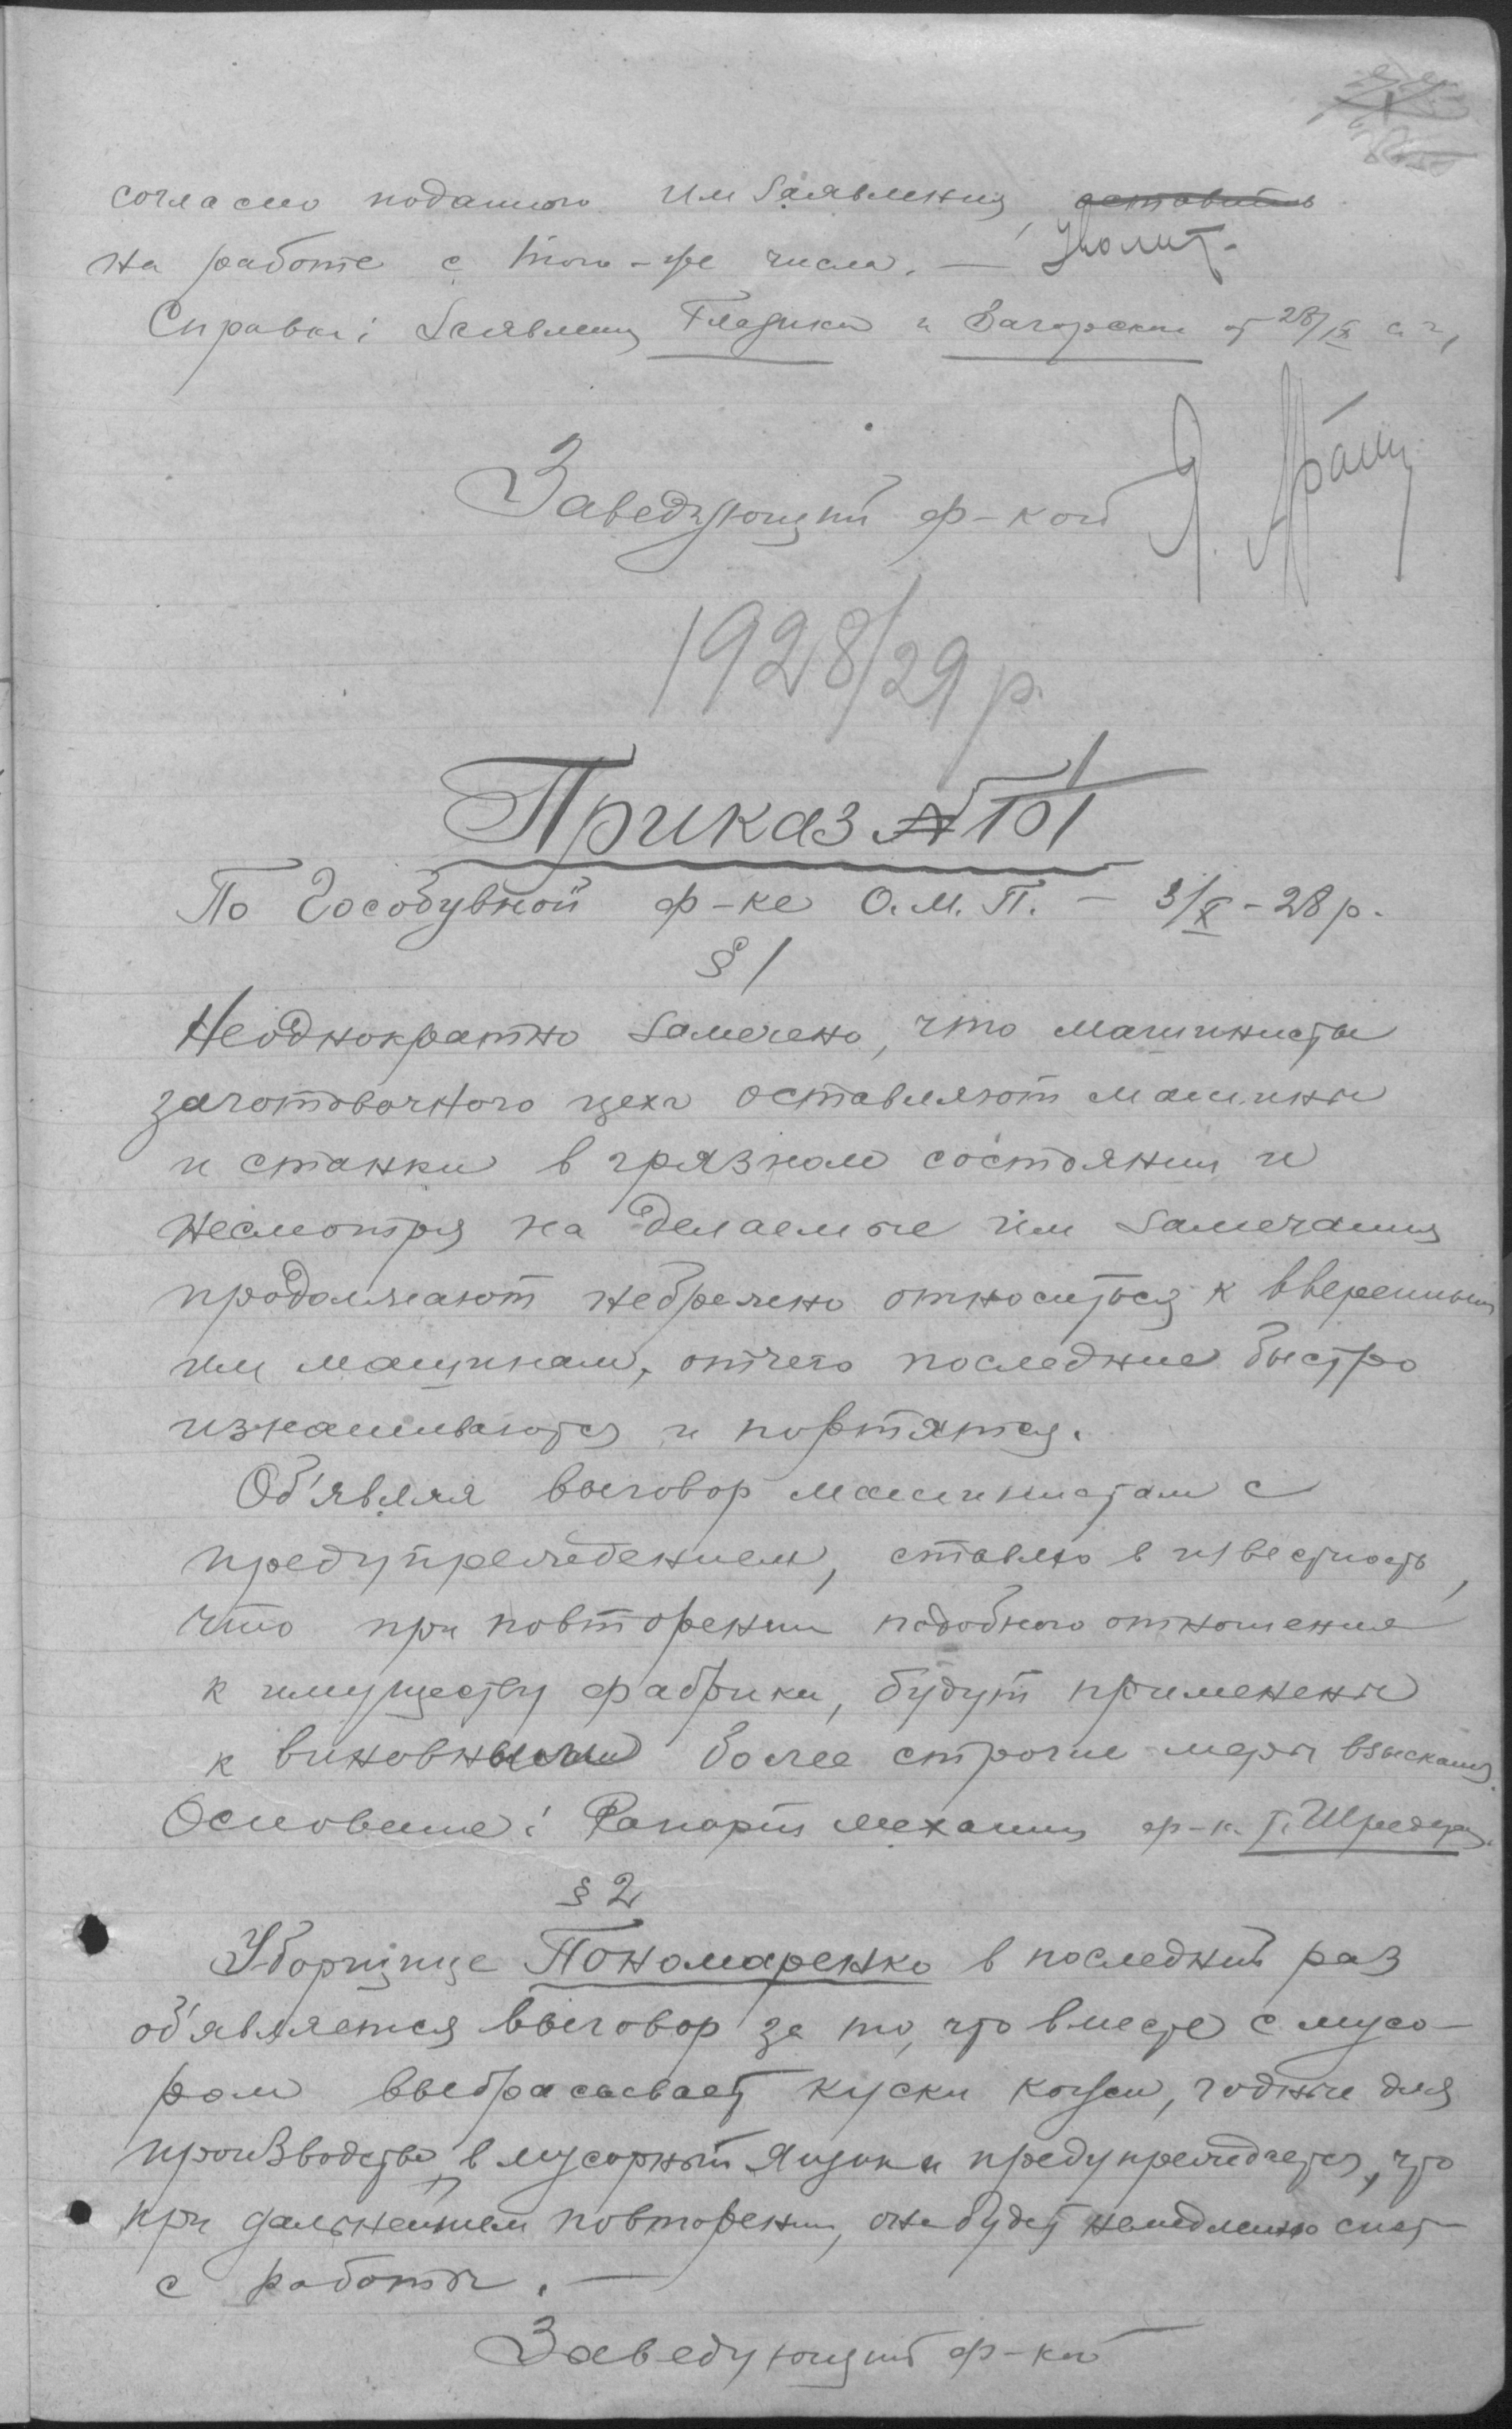 согласно поданного им заявления, оставить
на работе с того-же числа. — Уволит.
Справка: Заявлениц Гладики и Загорский от 28/IX с. г.
Заведующий ф-кой Я.
1928/29 р.
Приказ № 101 / 1
По Гособувной ф-ке О.М.П. — 3/X - 28 р.
§ 1
Неоднократно замечено, что машинисты
заготовочного цеха оставляют машины
и станки в грязном состоянии и
несмотря на делаемые им замечания
продолжают небрежно относиться к вверенным
им машинам, отчего последние быстро
изнашиваются и портятся.
Об'являя выговор машинистам с
предупреждением, ставлю в известность,
что при повторении подобного отношения
к имуществу фабрики, будут применены
к виновным более строгие меры взыскания.
Основание: Рапорт механика ф-к. т. Шредера.
§ 2
Уборщице Пономаренко в последний раз
об'является выговор за то, что вместе с мусо-
ром выбрасывает куски кожи, годные для
производства, в мусорный ящик и предупреждается, что
при дальнейшем повторении, она будет немедленно снят
с работы. —
Заведующий ф-кой